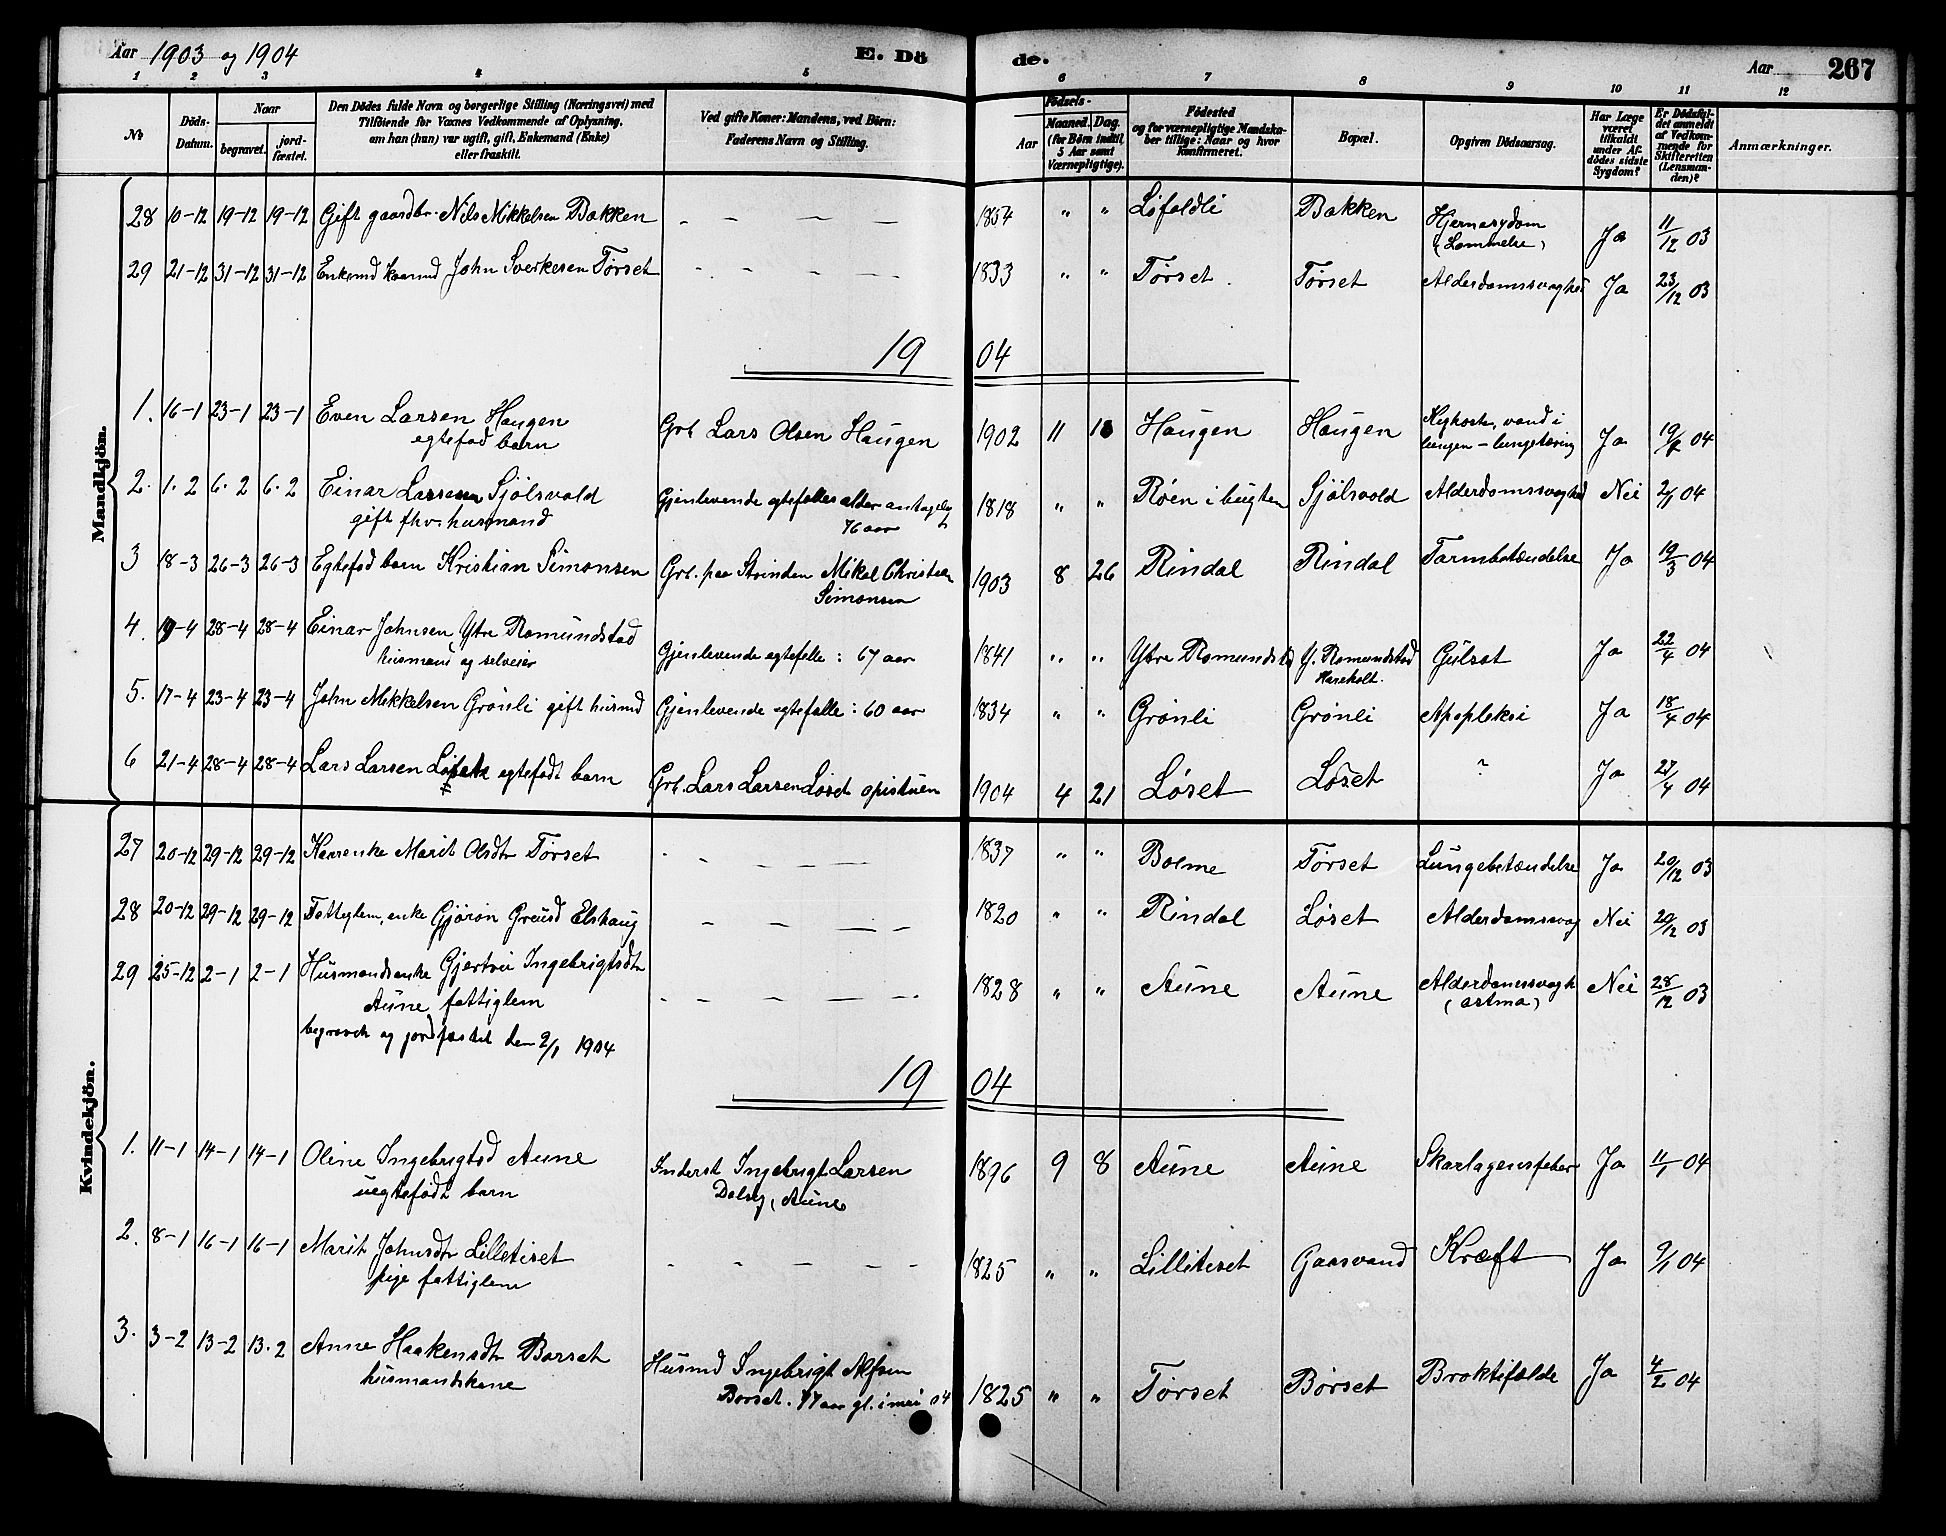 Aar 1903 og 1904 E. Dö de. Aar 267
1 2 3 4 5 6 7 8 9 10 11 12
No
Döds-Datum.
Naar begravet. jord-fæstet.
Den Dödes fulde Navn og borgerlige Stilling (Næringsvei) med
Tilföiende for Voxnes Vedkommende af Oplysning,
om han (hun) var ugift, gift, Enkemand (Enke)
eller fraskilt.
Ved gifte Koner: Mandens, ved Börn:
Faderens Navn og Stilling.
Födsels-
Aar Maaned. Dag.
(for Börn indtil
5 Aar samt
Værnepligtige).
Födested
og for værnepligtige Mandska-
ber tillige: Naar og hvor
konfirmeret.
Bopæl.
Opgiven Dödsaarsag.
Har Læge
været
tilkaldt
under Af-
dödes sidste
Sygdom?
Er Dödsfal-
det anmeldt
af Vedkom-
mende for
Skifteretten
(Lensman-
den)?
Anmærkninger.
Mandkjön.
28 10-12 19-12 19-12 Gift gaardbr. Nils Mikkelsen Bakken - - - - 1854 " " Lifaldli Bakken Hjernesygdom (Lammelse) Ja 11/12 03
29 21-12 31-12 31-12 Enkemd kaarmd John Sverkesen Tørset - - - - 1833 " " Tørset. Tørset Alderdomssvaghed Ja 23/12 03
19 04
1. 16-1 23-1 23-1 Even Larsen Haugen Grb. Lars Olsen Haugen 1902 11 Haugen Haugen Kighoste, vand i
egtefød barn lungen - lungetæring Ja 04
2. 1.2 6.2 6.2 Einar Larsen Sjölsvold Gjenlevende egtefælles alder antagelig 1818 " " Røen i bugten Sjölsvold Alderdomssvaghed Nei 2/1 04
gift fhv. husmand 76 aar
3 18-3 26-3 26-3 Egtefød barn Kristian Simonsen Grb. paa Strinden Mikal Christian 1903 8 26 Rindal Rindal Tarmbetændelse Ja 19/3 04
Simonsen
4. 28-4 28-4 Einar Johnsen Ytre Romundstad Gjenlevende egtefelle: 67 aar 1841 " " Ytre Romundstd Y. Romundstad Gulsot Ja 22/4 04
husmand og selveier Hareholt.
5. 17-4 23-4 23-4 John Mikkelsen Grönli gift husmd Gjenlevende egtefelle: 60 aar 1834 " " Grönli Grönli Apopleksi Ja 18/4 04
6 21-4 28-4 28-4 Lars Larsen egtefødt barn Grb. Lars Larsen Løset opistuen 1904 4 21 Løset Løset ? Ja 27/4 04
Kvindekjön.
27 20-12 29-12 29-12 Kaarenke Marit Olsdtr Tørset - - - - - 1837 " " Bolme Tørset Lungebetændelse Ja 20/12 03
28 20-12 29-12 29-12 Fattiglem, enke Gjøron Elshaug - - - - - 1820 " " Rindal Løset Alderdomssvag Nei 20/12 03
29 25-12 2-1 2-1 Husmandsenke Gjertrü Ingebrigtsdtr - - - - - 1828 " " Aune Aune Alderdomssvagh Nei 28/12 03
Aune fattiglem (astma)
begravet og jordfæstet den 2/1 1904
19 04
1. 11-1 14-1 14-1 Oline Ingebrigtsd Aune Inderst Ingebrigt Larsen 1896 9 8 Aune Aune Skarlagensfeber Ja 11/1 04
uegtefødt barn Aune
2. 8-1 16-1 16-1 Marit Johnsdtr Lilletiset - - - - - 1825 " " Lilletiset Gaasvand Kræft Ja 9/1 04
pige fattiglem
3. 3-2 13-2 13.2 Anne Haakensdtr Børset Husmd Ingebrigt 1825 " " Tørset Børset Broktilfælde Ja 4/2 04
husmandskone Børset. 77 aar gl. i mai 04